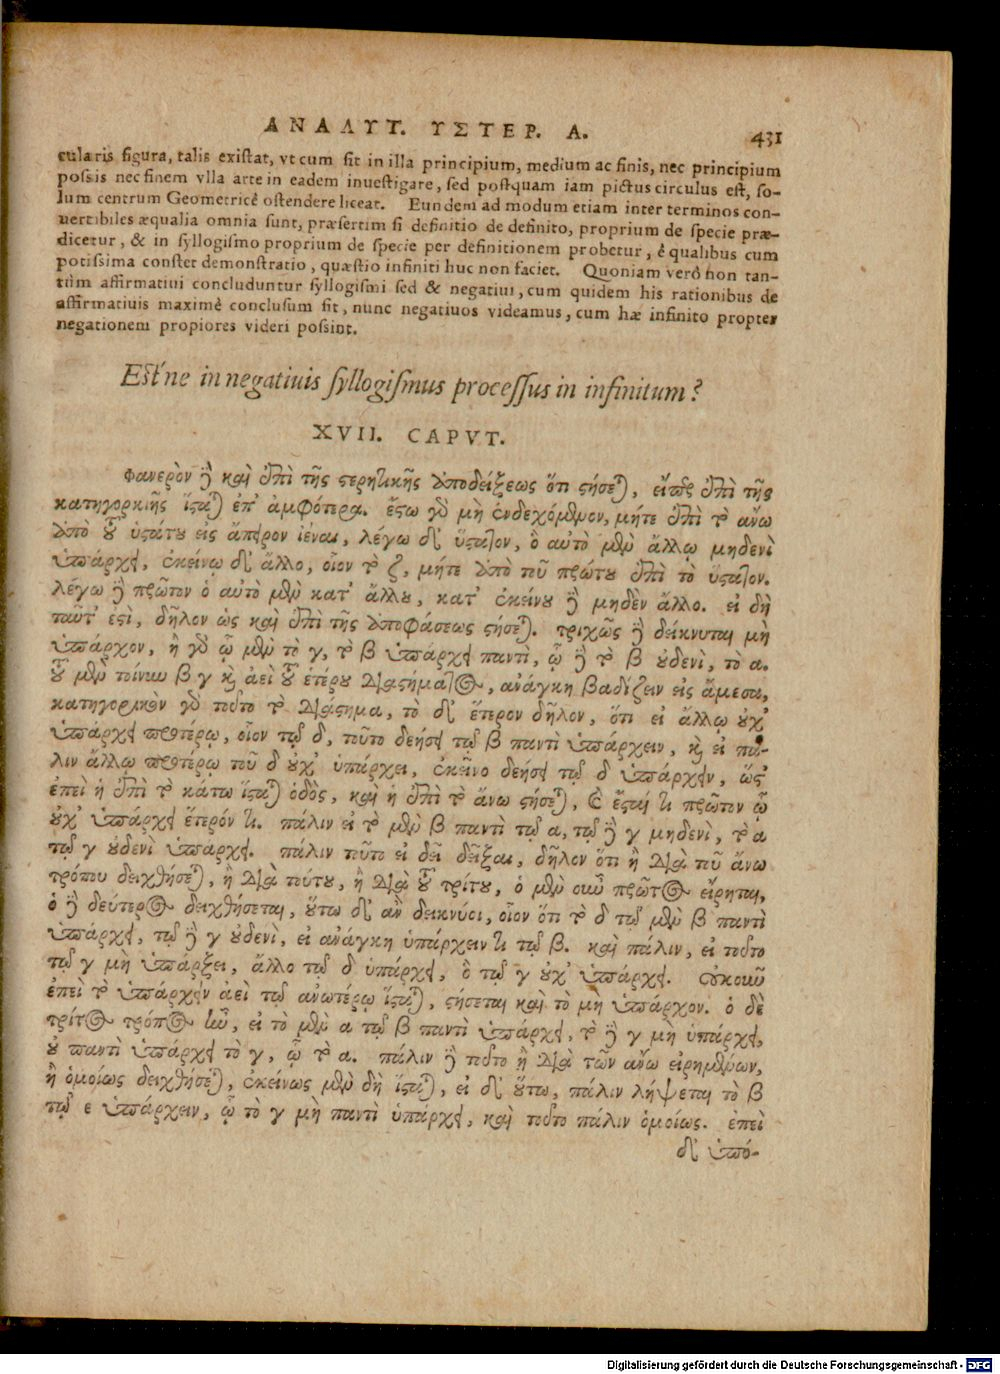 ΑΝΑΛΥΤ. ΥΣΤΕΡ. Α. 431
cularis figura, talis existat, vt cum sit in illa principium, medium ac finis, nec principium
possis nec finem vlla arte in eadem inuestigare, sed postquam iam pictus circulus est, so-
lum centrum Geometricè ostendere liceat. Eundem ad modum etiam inter terminos con-
uertibiles æqualia omnia sunt, præsertim si definitio de definito, proprium de specie præ-
dicetur, & in syllogismo proprium de specie per definitionem probetur, è qualibus cum
potissima constet demonstratio, quæstio infiniti huc non faciet. Quoniam verò non tan-
tùm affirmatiui concluduntur syllogismi sed & negatiui, cum quidem his rationibus de
affirmatiuis maximè conclusum sit, nunc negatiuos videamus, cum hæ infinito propter
negationem propiores videri possint.
Est´ne in negatiuis syllogismus processus in infinitum?
XVII. CAPVT.
φανερὸν ἢ καὶ ἐπὶ τῆς στερητικῆς ἀποδείξεως ὅτι στήσε), εἴπερ ἐπὶ τῆς
κατηγορκιῆς ἵστα) ἐπ' ἀμφότερα. ἔστω γὸ μὴ ἐνδεχόμθμον, μήτε ἐπὶ τὸ ἄνω
ἀπὸ τοῦ ὑστάτου εἰς ἄπειρον ἰέναι, λέγω δ' ὕστατον, ὃ αὐτὸ μὲν ἄλλῳ μηδενὶ
ὑπάρχει, ἐκείνῳ δ' ἄλλο, οἷον τὸ ζ, μήτε ἀπὸ τοῦ πρώτου ἐπὶ τὸ ὕστατον.
λέγω ἢ πρῶτον ὃ αὐτὸ μὲν κατ' ἄλλου, κατ' ἐκείνου ἢ μηδὲν ἄλλο. εἰ δὴ
ταῦτ' ἐστὶ, δῆλον ὡς καὶ ἐπὶ τῆς ἀποφάσεως στήσε). τριχῶς ἢ δείκνυται μὴ
ὑπάρχον, ἢ γὸ ᾧ μὲν τὸ γ, τὸ β ὑπάρχει παντὶ, ᾧ ἢ τὸ β οὐδενὶ, τὸ α.
τοῦ μὲν τοίνυν β γ καὶ ἀεὶ τοῦ ἑτέρου διαστήματος, ἀνάγκη βαδίζειν εἰς ἄμεσα,
κατηγορικὸν γὸ τοῦτο τὸ διάστημα, τὸ δ' ἕτερον δῆλον, ὅτι εἰ ἄλλῳ οὐχ'
ὑπάρχει προτέρῳ, οἷον τῷ δ, τοῦτο δεήσει τῷ β παντὶ ὑπάρχειν, καὶ εἰ πά-
λιν ἄλλῳ προτέρῳ τοῦ δ οὐχ' ὑπάρχει, ἐκεῖνο δεήσει τῷ δ ὑπάρχειν, ὥς'
ἐπεὶ ἡ ἐπὶ τὸ κάτω ἵστα) ὁδὸς, καὶ ἡ ἐπὶ τὸ ἄνω στήσε), καὶ ἔσται τι πρῶτον ᾧ
οὐχ' ὑπάρχει ἕτερόν τι. πάλιν εἰ τὸ μὲν β παντὶ τῷ α, τῷ ἢ γ μηδενὶ, τὸ α
τῷ γ οὐδενὶ ὑπάρχει. πάλιν τοῦτο εἰ δεῖ δεῖξαι, δῆλον ὅτι ἢ διὰ τοῦ ἄνω
τρόπου δειχθήσε), ἢ διὰ τούτου, ἢ διὰ τοῦ τρίτου, ὁ μὲν οὖν πρῶτος εἴρηται,
ὁ ἢ δεύτερος δειχθήσεται, οὕτω δ' ἂν δεικνύοι, οἷον ὅτι τὸ δ τῷ μὲν β παντὶ
ὑπάρχει, τῷ ἢ γ οὐδενὶ, εἰ ἀνάγκη ὑπάρχειν τι τῷ β. καὶ πάλιν, εἰ τοῦτο
τῷ γ μὴ ὑπάρξει, ἄλλο τῷ δ ὑπάρχει, ὃ τῷ γ οὐχ' ὑπάρχει. οὐκοῦν
ἐπεὶ τὸ ὑπάρχειν ἀεὶ τῷ ἀνωτέρῳ ἵστα), στήσεται καὶ τὸ μὴ ὑπάρχον. ὁ δὲ
τρίτος τρόπος ἦν, εἰ τὸ μὲν α τῷ β παντὶ ὑπάρχει, τὸ ἢ γ μὴ ὑπάρχει,
οὐ παντὶ ὑπάρχει τὸ γ, ᾧ τὸ α. πάλιν ἢ τοῦτο ἢ διὰ τῶν ἄνω εἰρημένων,
ἢ ὁμοίως δειχθήσε), ἐκείνως μὲν δὴ ἵστα), εἰ δ' οὕτω, πάλιν λήψεται τὸ β
τῷ ε ὑπάρχειν, ᾧ τὸ γ μὴ παντὶ ὑπάρχει, καὶ τοῦτο πάλιν ὁμοίως. ἐπεὶ
δ' ὑπό-
Digitalisierung gefördert durch die Deutsche Forschungsgemeinschaft - DFG